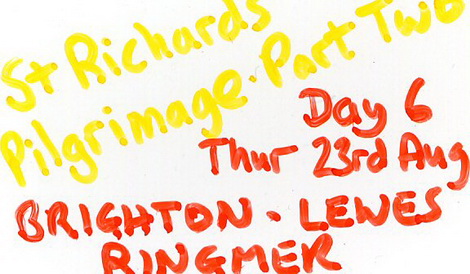 St Richards
Pilgrimage. Part Two
Day 6
Thur 23rd Aug
BRIGHTON. LEWES
RINGMER